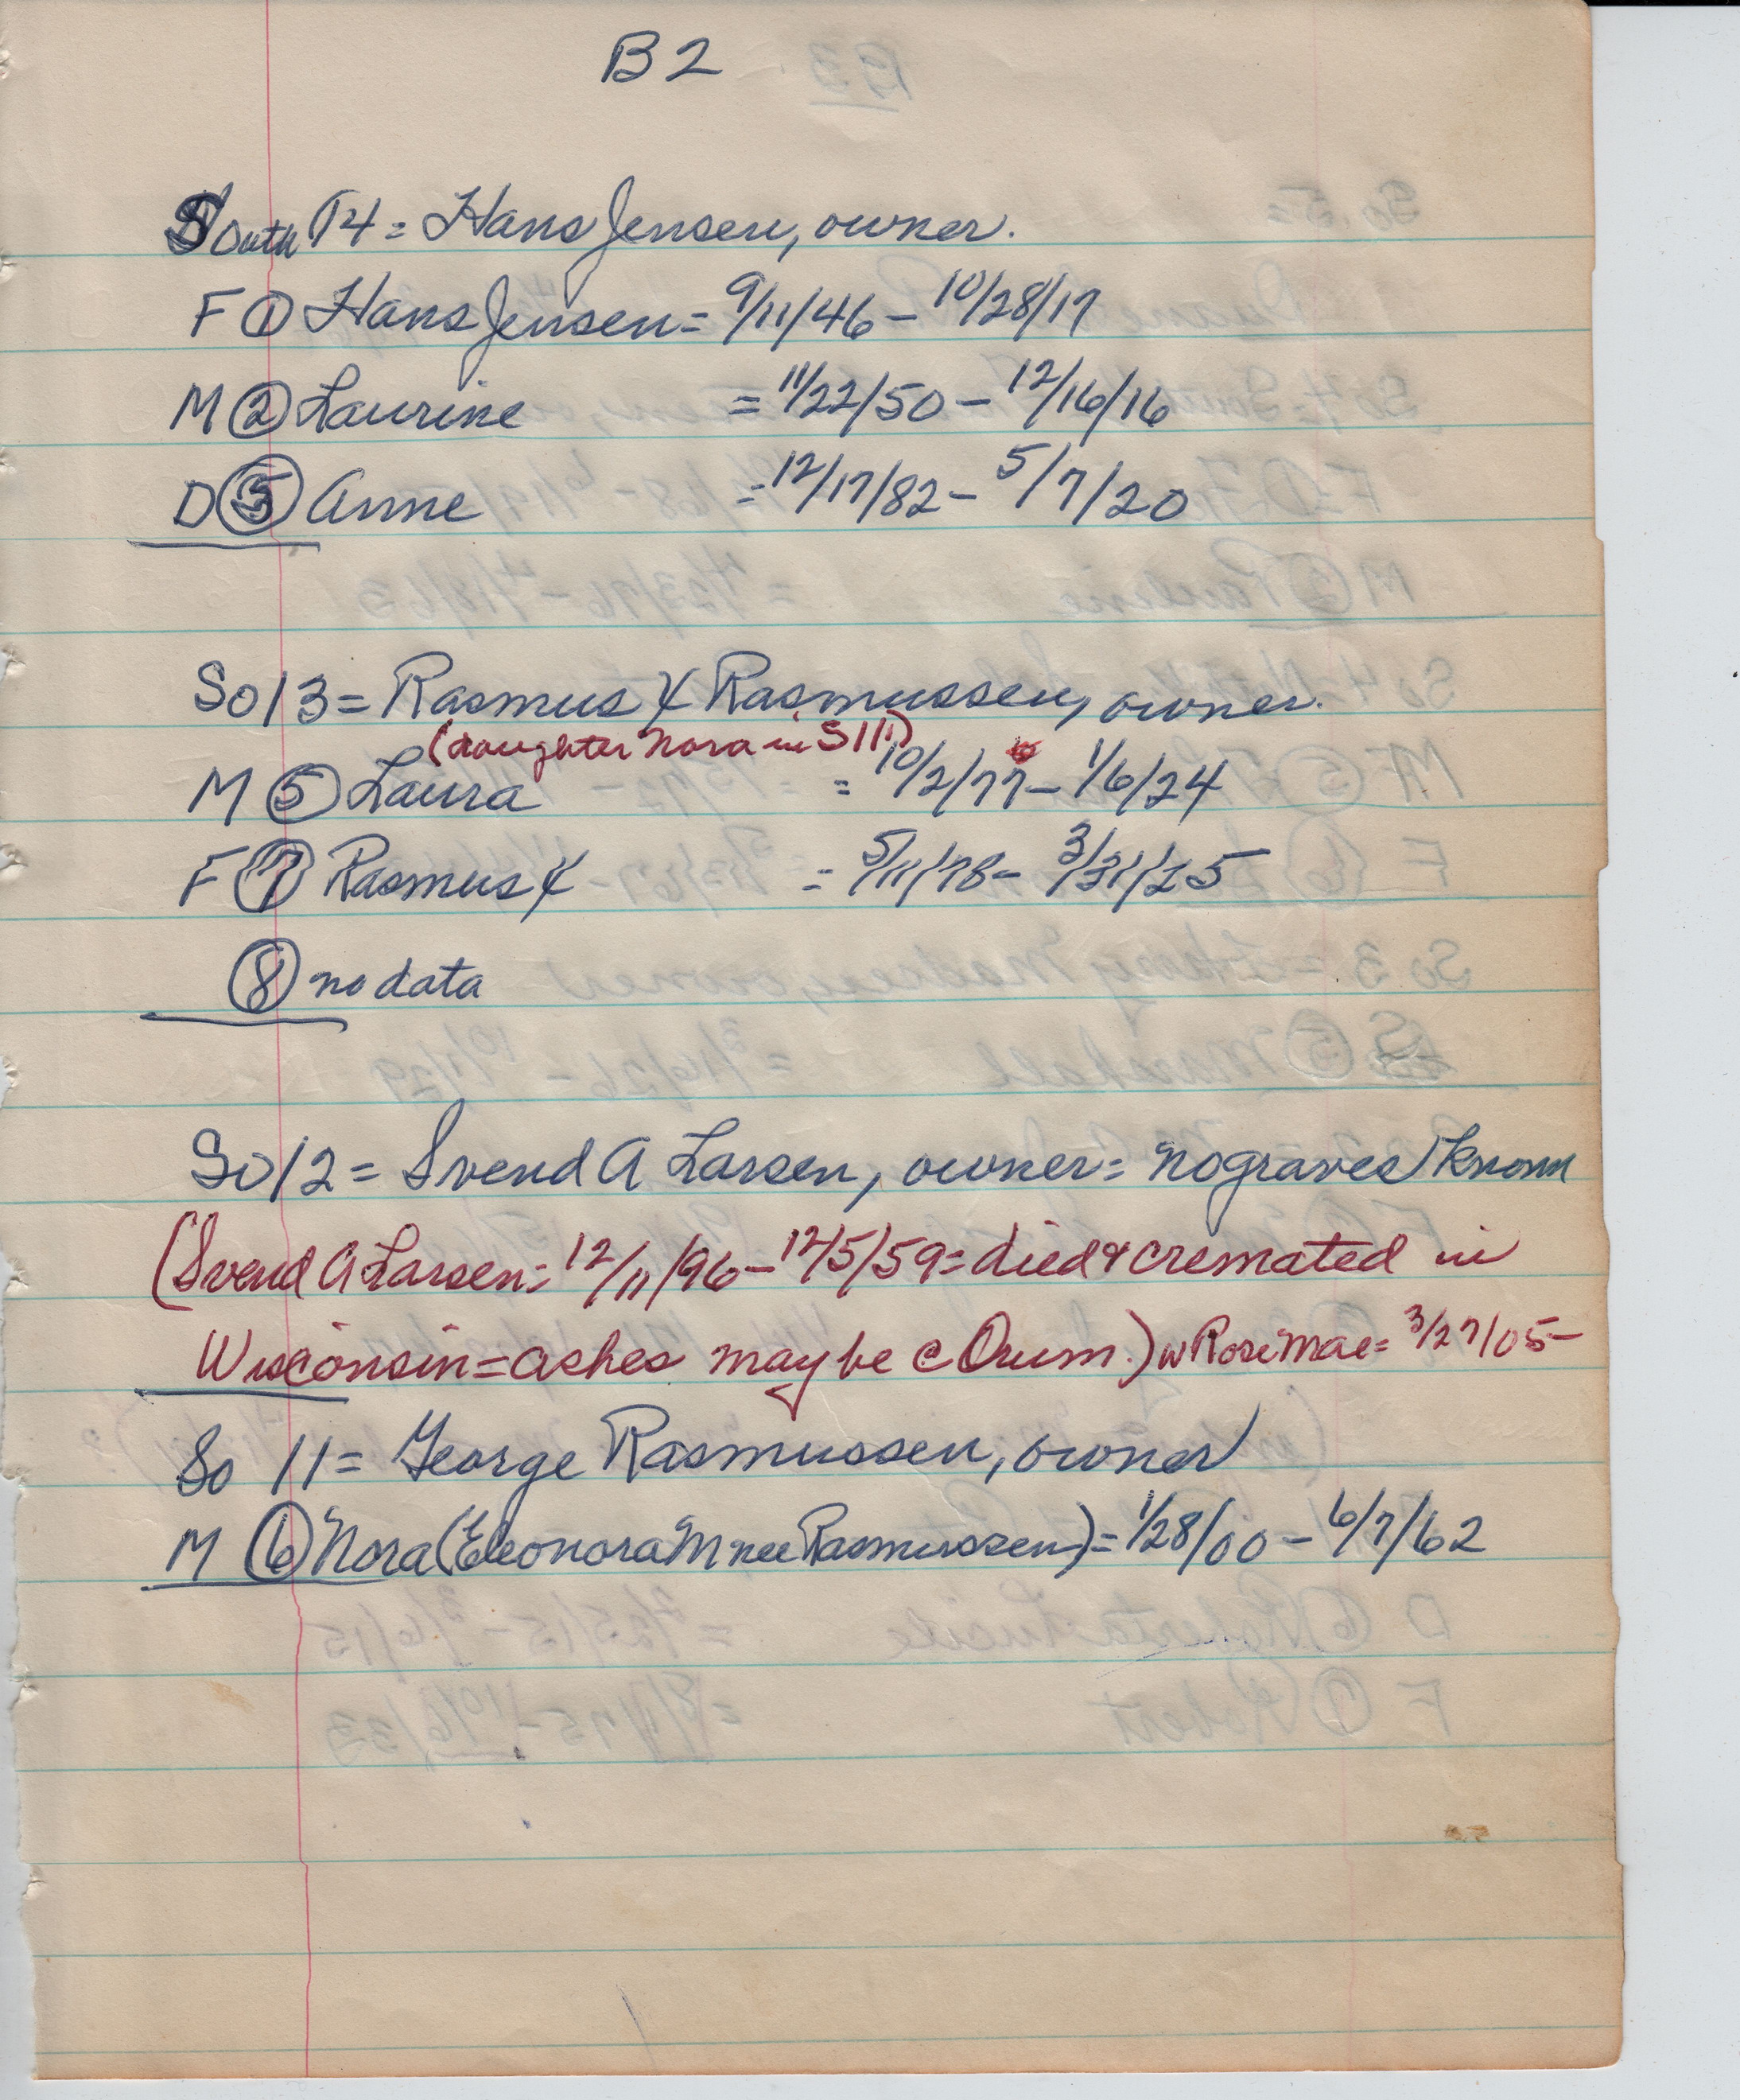 B2
South 14 = Hans Jensen, owner.
F ① Hans Jensen = 9/11/46 – 10/28/17
M ② Laurine = 11/22/50 – 12/16/16
D ⑤ Anne = 12/17/82 – 5/7/20
So 13 = Rasmus X Rasmussen, owner.
(daughter Nora in S 11)
M ⑤ Laura = 10/2/77 – 1/6/24
F ⑦ Rasmus X = 5/11/78 – 3/31/25
⑧ no data
So 12 = Svend A Larsen, owner = no graves known
(Svend A Larsen = 12/11/96 – 12/5/59 = died & cremated in
Wisconsin = ashes may be @ Orum.) w Rose Mae = 3/27/05 –
So 11 = George Rasmussen, owner
M ⑥ Nora (Eleonora M nee Rasmussen) = 1/28/00 – 6/7/62